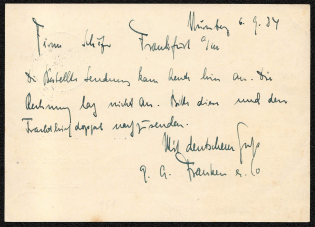 Nürnberg 6.9.34
Firma Schäfer Frankfurt a/m
Die bestellte Sendung kam heute hier an. Die
Rechnung lag nicht an. Bitte diese und den
Frachtbrief doppelt nachzusenden.
Mit deutschem Gruß
G. Franken & Co